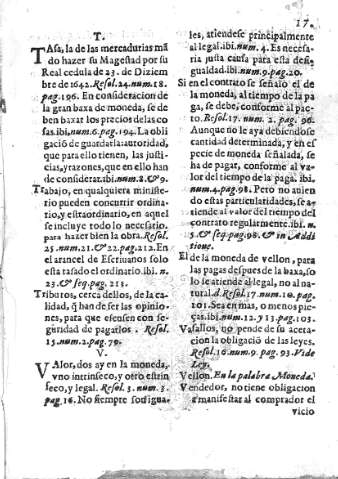 17.
T.
TAsa, la de las mercadurias mã
do hazer su Magestad por su
Real cedula de 23. de Diziem
bre de 1642. Resol. 24. num. 18.
pag. 196. En consideracion de
la gran baxa de moneda, se de
ben baxar los precios de las co
sas. ibi. num. 6. pag. 194. La obli
gació de guardarla: autoridad,
que para ello tienen, las justi-
cias, y razones, que en ello han
de considerar. ibi. num. 8. & 9.
Trabajo, en qualquiera ministe-
rio pueden concurrir ordina-
rio, y estraordinario, en aquel
se incluye todo lo necessario,
para hazer bien la obra. Resol.
25. num. 21. & 22. pag. 212. En
el arancel de Escriuanos solo
esta tasado el ordinario. ibi. n.
23. & seq. pag. 211.
Tributos, cerca dellos, de la ca-
lidad, q̃ han de ser las opinio-
nes, para que escusen con se-
guridad de pagarlos. Resol.
15. num. 2. pag. 79.
V.
VAlor, dos ay en la moneda,
vno intrinseco, y otro estrin
seco, y legal. Resol. 3. num. 3.
pag. 16. No siempre son igua-
les, atiendese principalmente
al legal. ibi. num. 4. Es necessa-
ria justa causa para esta des-
igualdad. ibi. num. 9. pag. 20.
Si en el contrato se señalo el de
la moneda, al tiempo de la pa
ga, se debe, conforme al pac-
to. Resol. 17. num. 2. pag. 96.
Aunque no le aya debiendose
cantidad determinada, y en es
pecie de moneda señalada, se
ha de pagar, conforme al va-
lor del tiempo de la paga. ibi.
num. 4. pag. 98. Pero no auien
do estas particularidades, se a-
tiende al valor del tiempo del
contrato regularmente. ibi. n.
5. & seq. pag. 98. & in Addi
tione.
El de la moneda de vellon, para
las pagas despues de la baxa, so
lo se atiende al legal, no al na-
tural. d. Resol. 17. num. 10. pag.
101. Sea en mas, o menos pie-
ças. ibi. num. 12. y 13. pag. 103.
Vasallos, no pende de su aceta-
cion la obligacion de las leyes.
Resol. 16. num. 9. pag. 93. Vide
Ley.
Vellon. En la palabra Moneda.
Vendedor, no tiene obligacion
a manifestar al comprador el
vicio